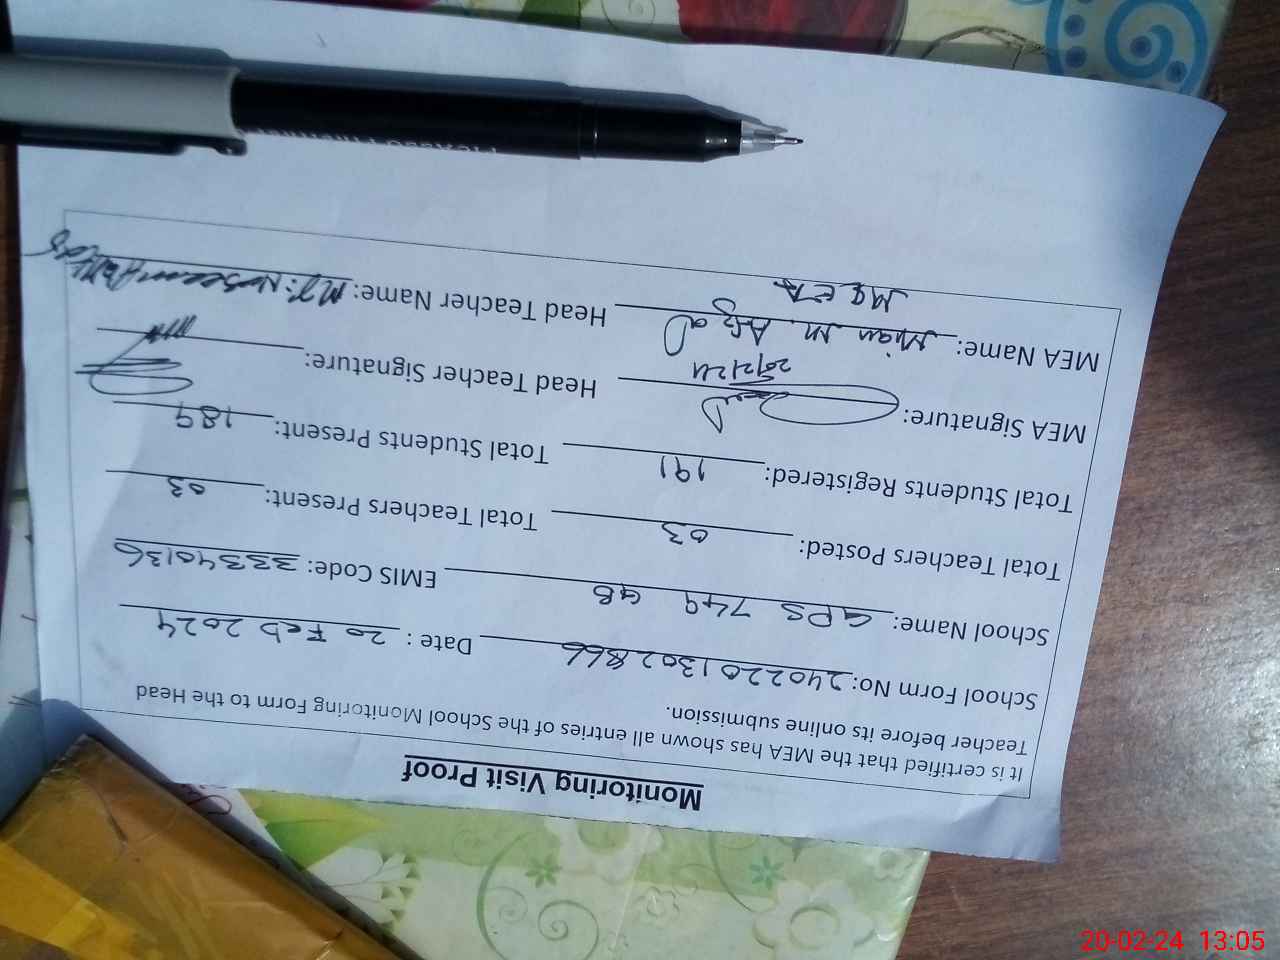 Monitoring Visit Proof
It is certified that the MEA has shown all entries of the School Monitoring Form to the Head
Teacher before its online submission.
School Form No: 2402201302866 Date : 20 Feb 2024
School Name: GPS 749 GB EMIS Code: 33340136
Total Teachers Posted: 03 Total Teachers Present: 03
Total Students Registered: 191 Total Students Present: 189
MEA Signature: 20/2/24 Head Teacher Signature:
MEA Name: Mian M. Afzal Head Teacher Name:
20-02-24 13:05